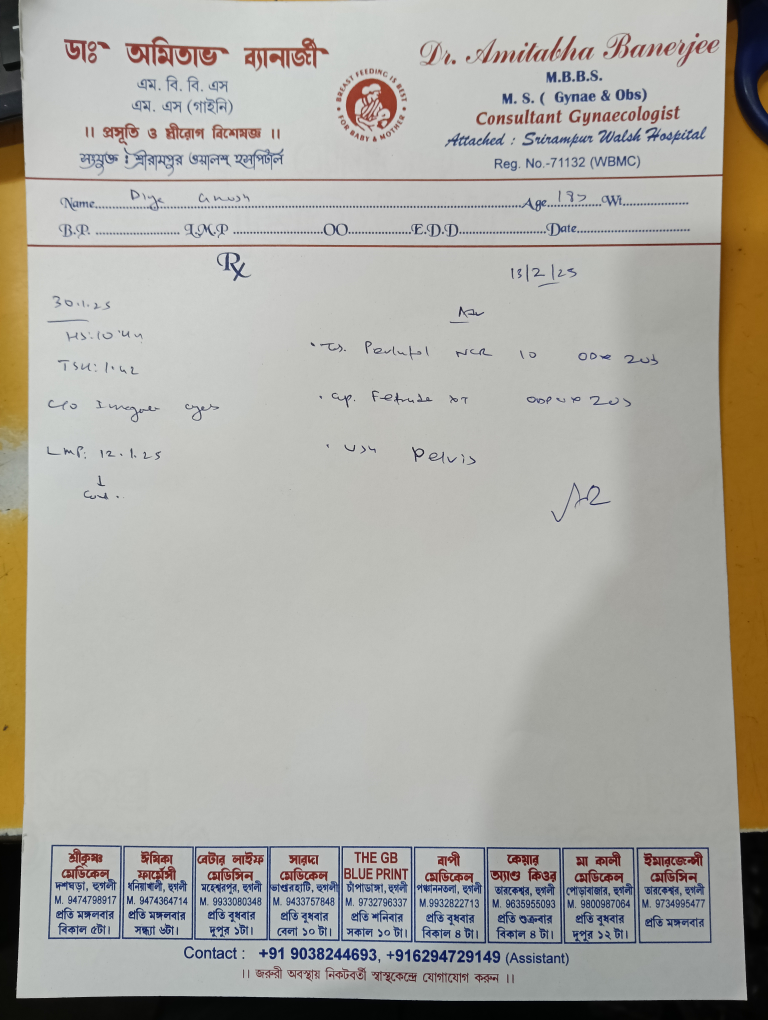 ডাঃ অমিতাভ ব্যানার্জী
এম. বি. বি. এস
এম. এস (গাইনি)
।। প্রসূতি ও স্ত্রীরোগ বিশেষজ্ঞ ।।
সংযুক্ত : শ্রীরামপুর ওয়ালশ হসপিটাল
BREAST FEEDING IS BEST
FOR BABY & MOTHER
Dr. Amitabha Banerjee
M.B.B.S.
M. S. ( Gynae & Obs)
Consultant Gynaecologist
Attached : Srirampur Walsh Hospital
Reg. No.-71132 (WBMC)
Name Age Wt
B.P. L.M.P OO E.D.D Date
Rx
13/2/25
30.1.25
TSH: 1.42
c/o
LMP: 12.1.25
10
Pelvis
শ্রীকৃষ্ণ মেডিকেল
দশঘড়া, হুগলী
M. 9474798917
প্রতি মঙ্গলবার
বিকাল ৫টা।
ঈষিকা ফার্মেসী
ধনিয়াখালী, হুগলী
M. 9474364714
প্রতি মঙ্গলবার
সন্ধ্যা ৬টা।
বেটার লাইফ মেডিসিন
মহেশ্বরপুর, হুগলী
M. 9933080348
প্রতি বুধবার
দুপুর ১টা।
সারদা মেডিকেল
ভান্ডারহাটি, হুগলী
M. 9433757848
প্রতি বুধবার
বেলা ১০ টা।
THE GB BLUE PRINT
চাঁপাডাঙ্গা, হুগলী
M. 9732796337
প্রতি শনিবার
সকাল ১০ টা।
বাপী মেডিকেল
পঞ্চাননতলা, হুগলী
M.9932822713
প্রতি বুধবার
বিকাল ৪ টা।
কেয়ার অ্যাণ্ড কিওর
তারকেশ্বর, হুগলী
M. 9635955093
প্রতি শুক্রবার
বিকাল ৪ টা।
মা কালী মেডিকেল
পোড়াবাজার, হুগলী
M. 9800987064
প্রতি বুধবার
দুপুর ১২ টা।
ইমারজেন্সী মেডিসিন
তারকেশ্বর, হুগলী
M. 9734995477
প্রতি মঙ্গলবার
Contact : +91 9038244693, +916294729149 (Assistant)
।। জরুরী অবস্থায় নিকটবর্তী স্বাস্থ্যকেন্দ্রে যোগাযোগ করুন ।।